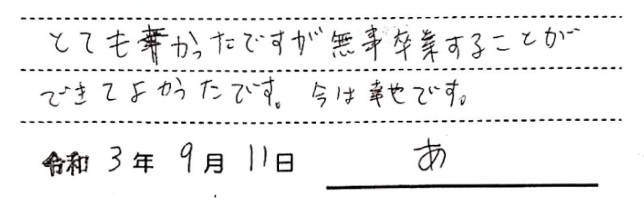 とても辛かったですが無事卒業することが
できてよかったです。今は幸せです。
令和 3年 9月 11日 あ